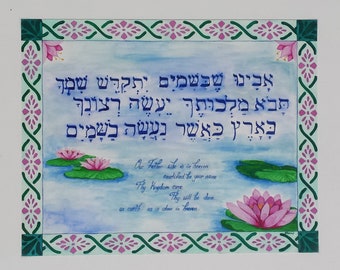 אָבִינוּ שֶׁבַּשָּׁמַיִם יִתְקַדֵּשׁ שִׁמְךָ
תָּבֹא מַלְכוּתֶךָ יֵעָשֶׂה רְצוֹנְךָ
בָּאָרֶץ כַּאֲשֶׁר נַעֲשָׂה בַשָּׁמָיִם
Our Father who is in heaven
be your name
Thy kingdom come
Thy will be done
on earth as is done in heaven